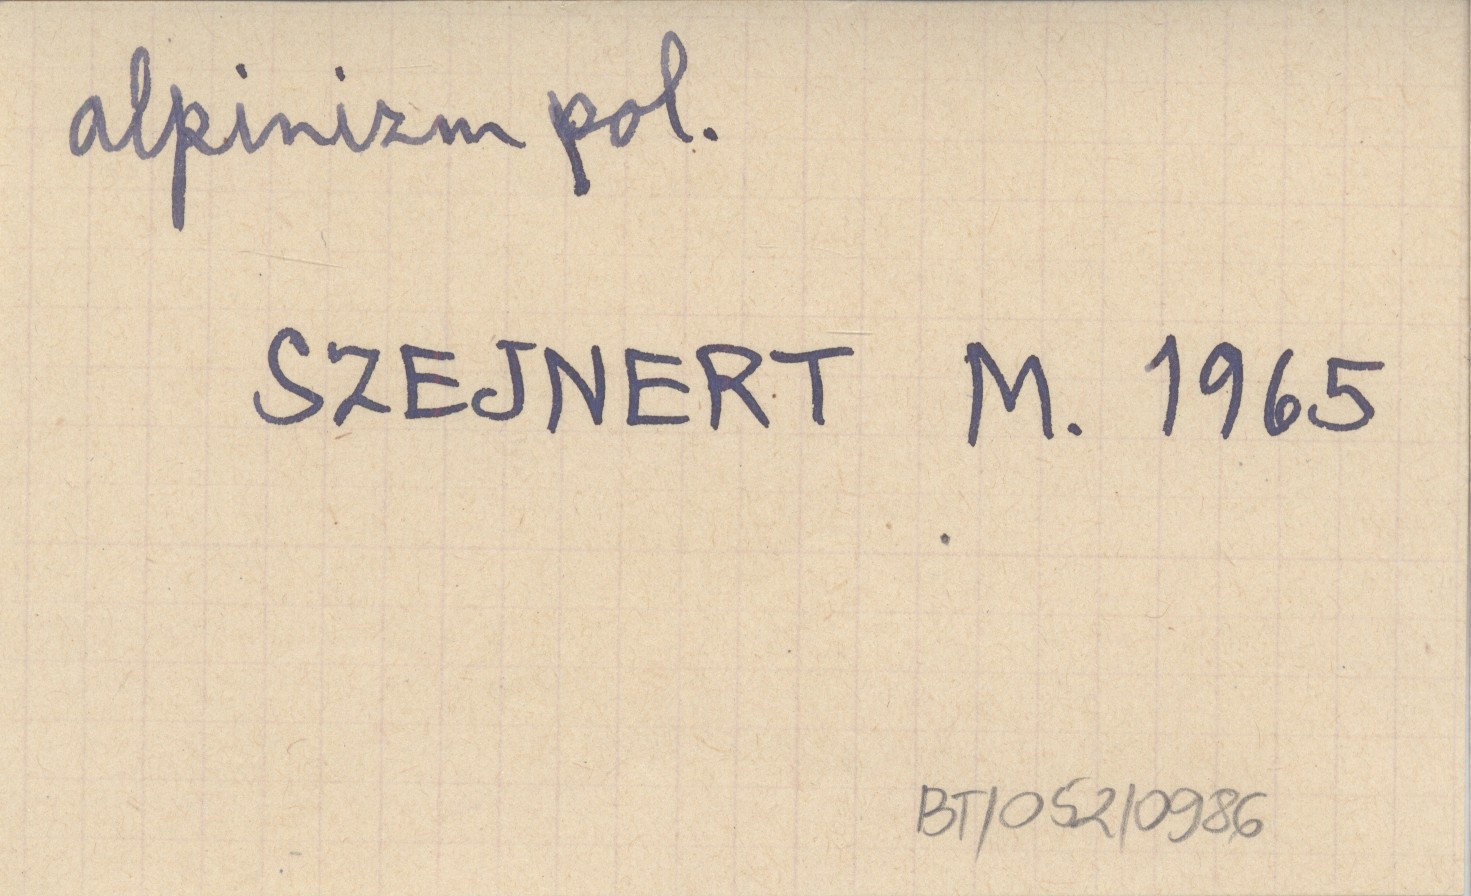 alpinizm pol.
SZEJNERT M. 1965
BT/052/0986